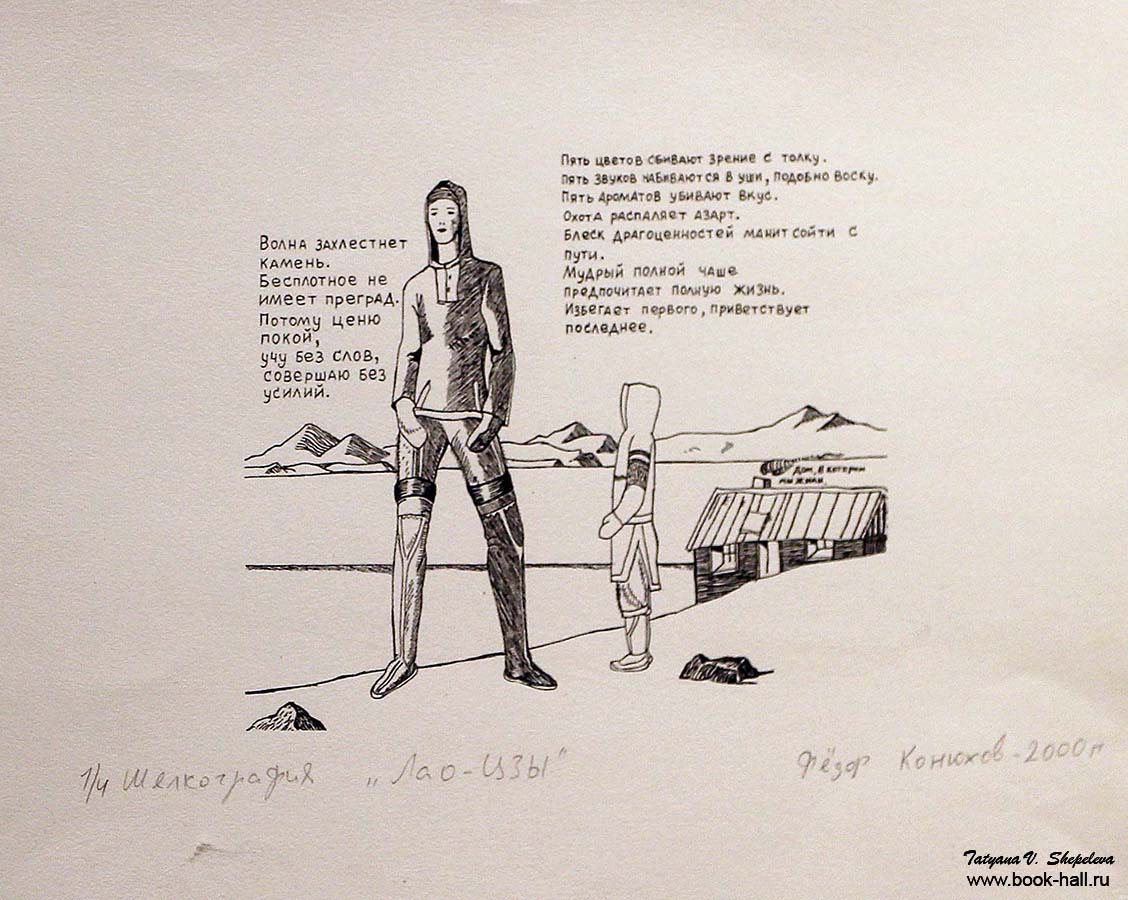 Пять цветов сбивают зрение с толку.
Пять звуков набиваются в уши, подобно воску.
Пять ароматов убивают вкус.
Охота распаляет азарт.
Блеск драгоценностей манит сойти с
пути.
Мудрый полной чаше
предпочитает полную жизнь.
Избегает первого, приветствует
последнее.
Волна захлестнет
камень.
Бесплотное не
имеет преград.
Потому ценю
покой,
учу без слов,
совершаю без
усилий.
Дом, в котором
мы жили.
1/4 Шелкография „Лао-Цзы" Фёдор Конюхов-2000 г
Tatyana V. Shepeleva
www.book-hall.ru